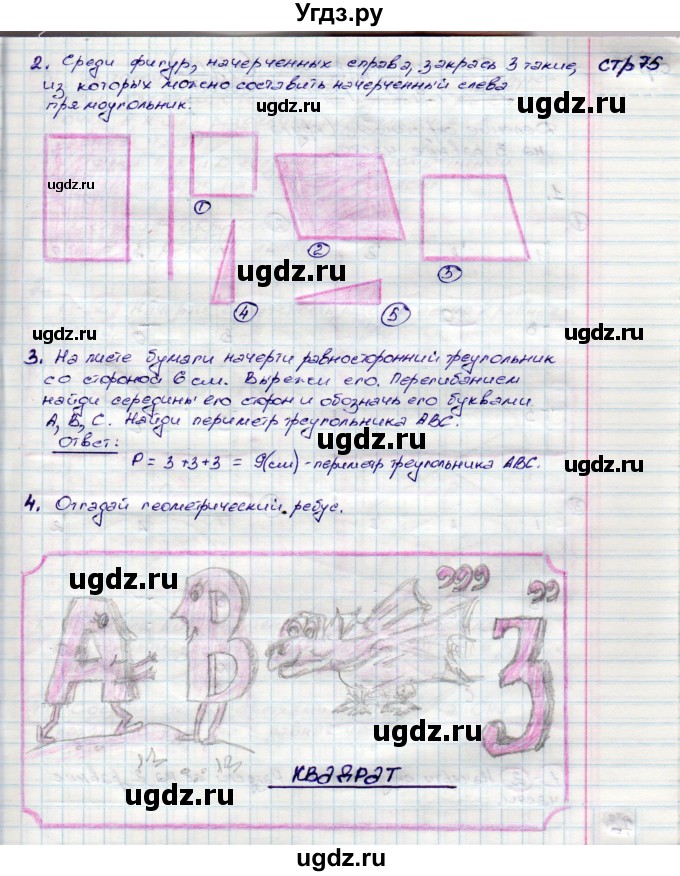 Угдз.ру
2. Среди фигур, начерченных справа, закрась 3 такие, стр 75
из которых можно составить начерченный слева
прямоугольник.
ugdz.ru
ugdz.ru
ugdz.ru
1
2
3
ugdz.ru
4
5
ugdz.ru
ugdz.ru
3. На листе бумаги начерти равносторонний треугольник
со стороной 6 см. Вырежи его. Перегибанием
найди середины его сторон и обозначь его буквами
А, Б, С. Найди периметр треугольника АВС.
ugdz.ru
Ответ:
P = 3+3+3 = 9(см) - периметр треугольника АВС.
4. Отгадай геометрический ребус.
ugdz.ru
ugdz.ru
,,, ,,
А В 3
ugdz.ru
КВАДРАТ
ugdz.ru
ugdz.ru
ugdz.ru